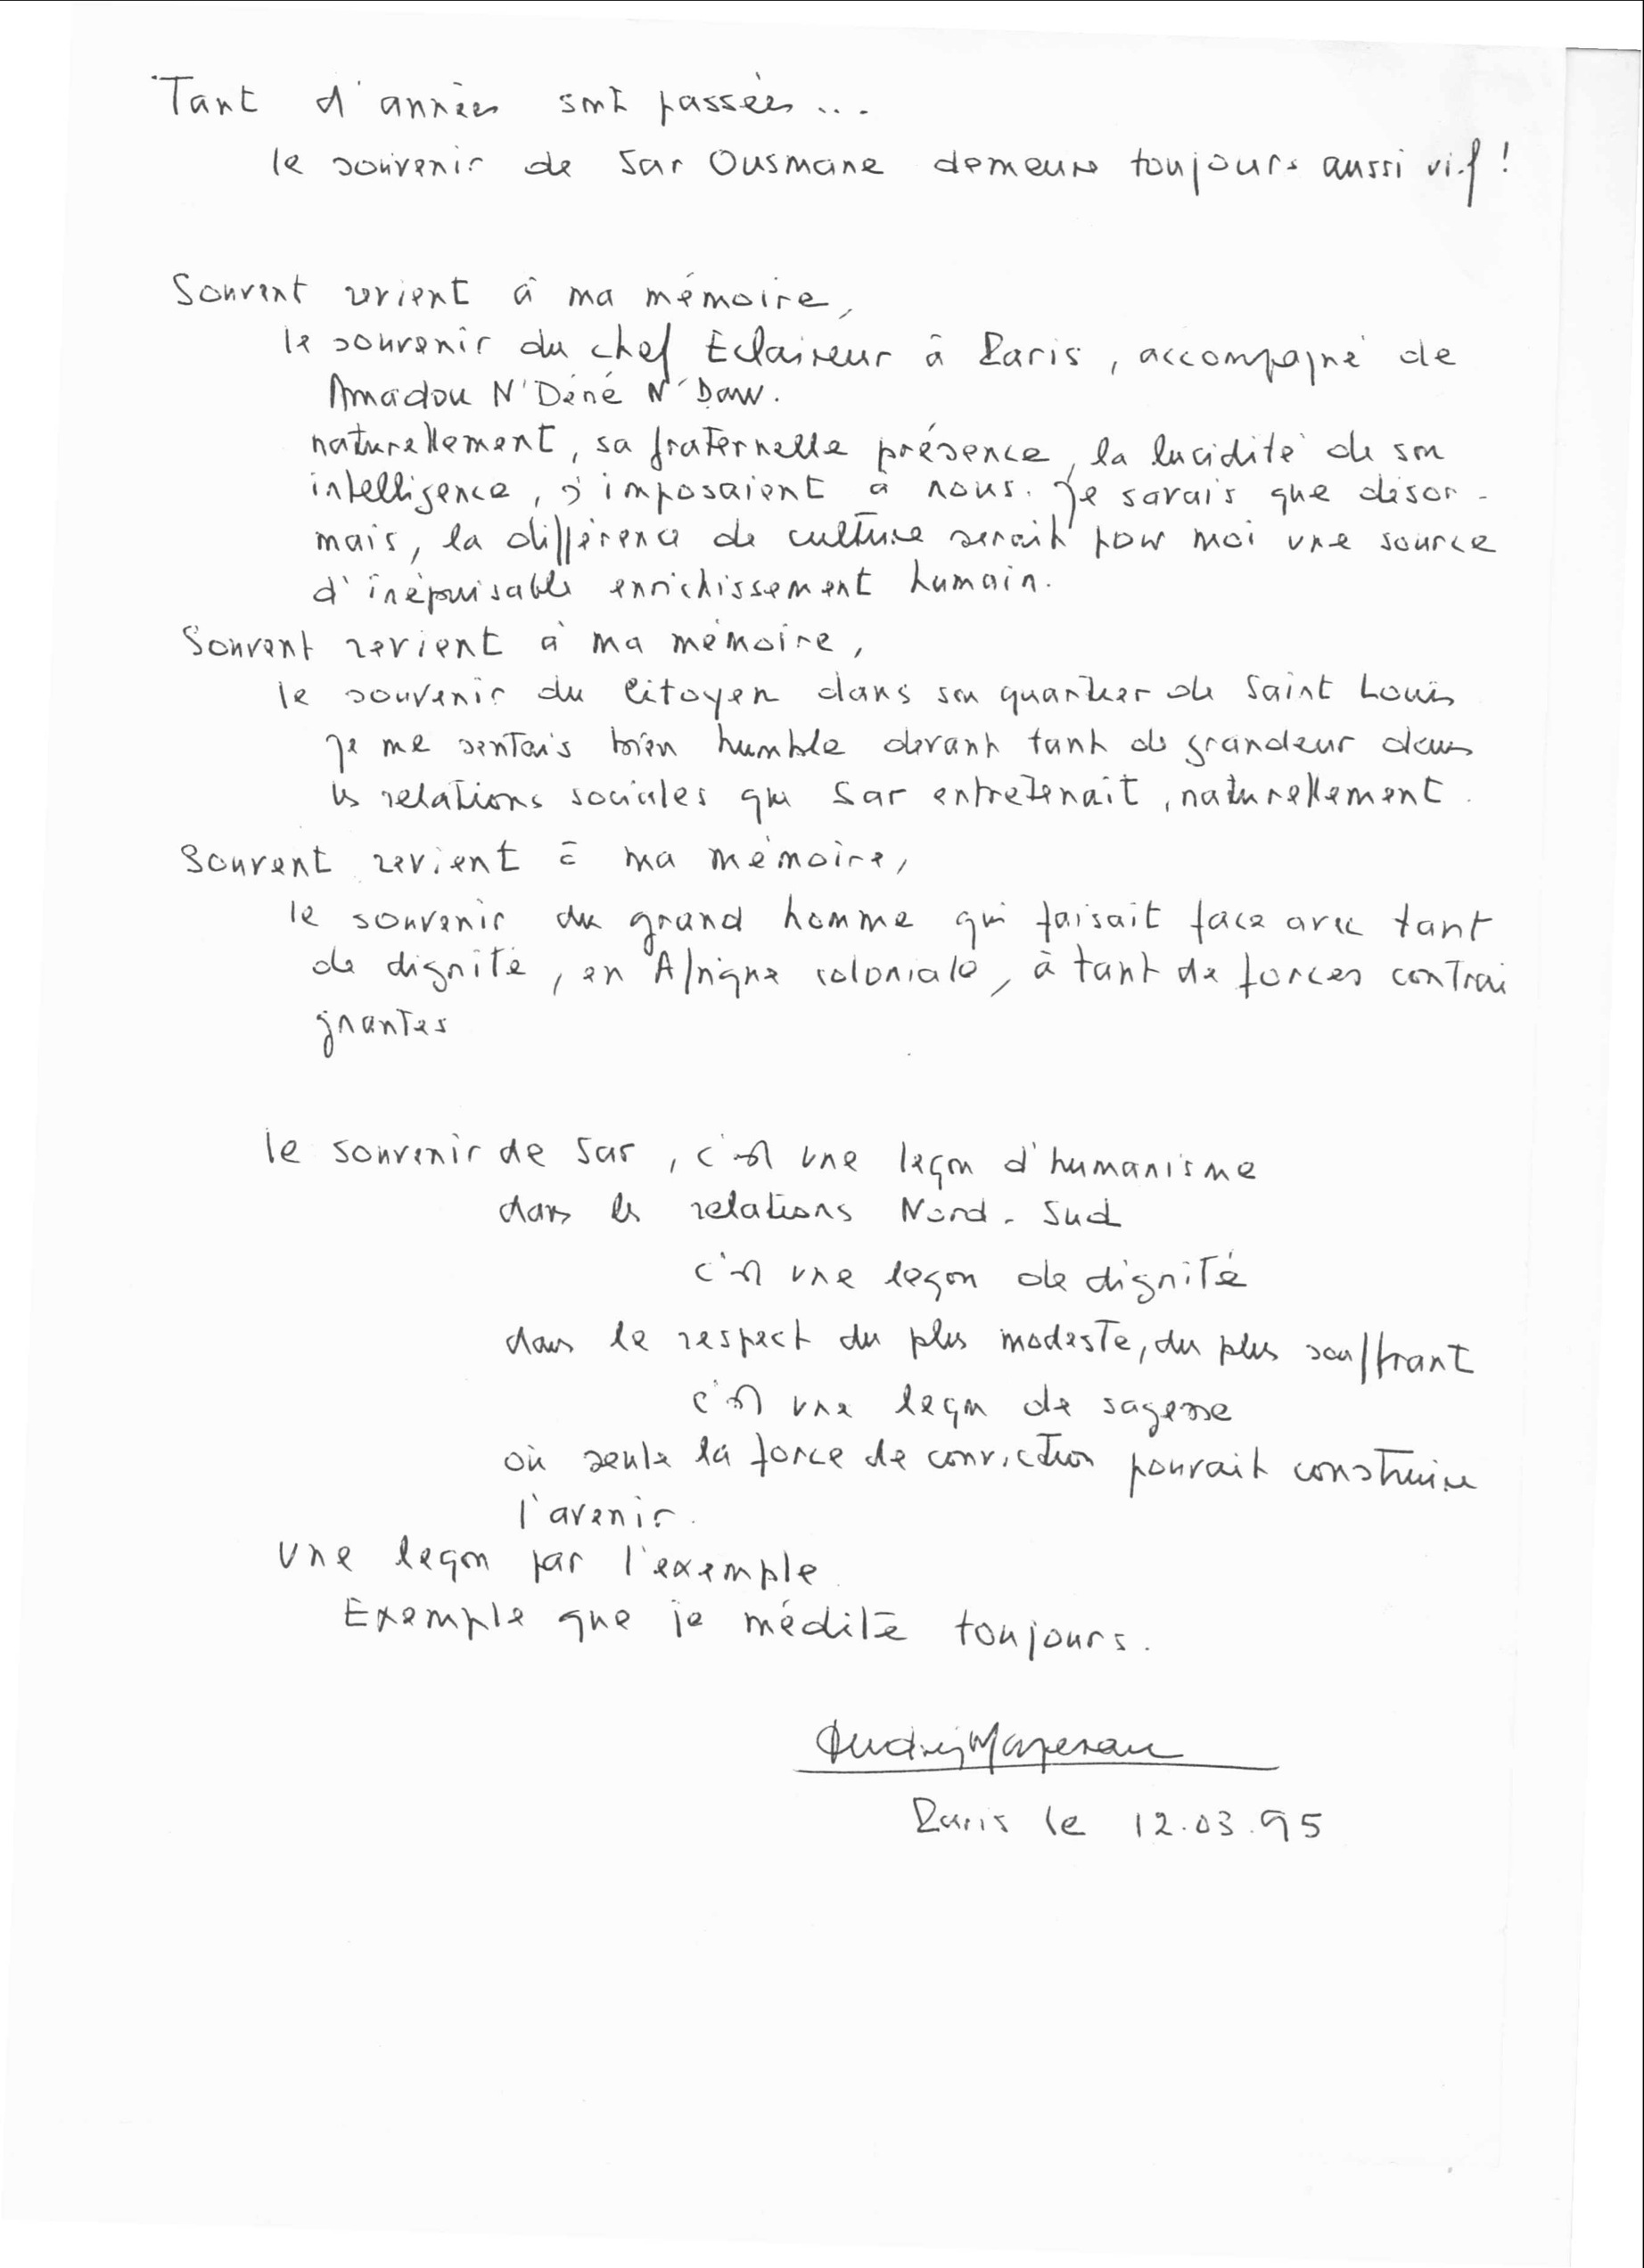 Tant d'années sont passées...
le souvenir de Sar Ousmane demeure toujours aussi vif !
Souvent revient à ma mémoire,
le souvenir du chef Eclaireur à Paris, accompagné de
Amadou N'Déné N'Daw.
naturellement, sa fraternelle présence, la lucidité de son
intelligence, s'imposaient à nous. Je savais que désor-
mais, la différence de culture serait pour moi une source
d'inépuisable enrichissement humain.
Souvent revient à ma mémoire,
le souvenir du Citoyen dans son quartier de Saint Louis
je me sentais bien humble devant tant de grandeur dans
les relations sociales que Sar entretenait, naturellement.
Souvent revient à ma mémoire,
le souvenir du grand homme qui faisait face avec tant
de dignité, en Afrique coloniale, à tant de forces contrai
gnantes
le souvenir de Sar, c'est une leçon d'humanisme
dans les relations Nord-Sud
c'est une leçon de dignité
dans le respect du plus modeste, du plus souffrant
c'est une leçon de sagesse
où seule la force de conviction pouvait construire
l'avenir.
Une leçon par l'exemple
Exemple que je médite toujours.
Paris le 12.03.95